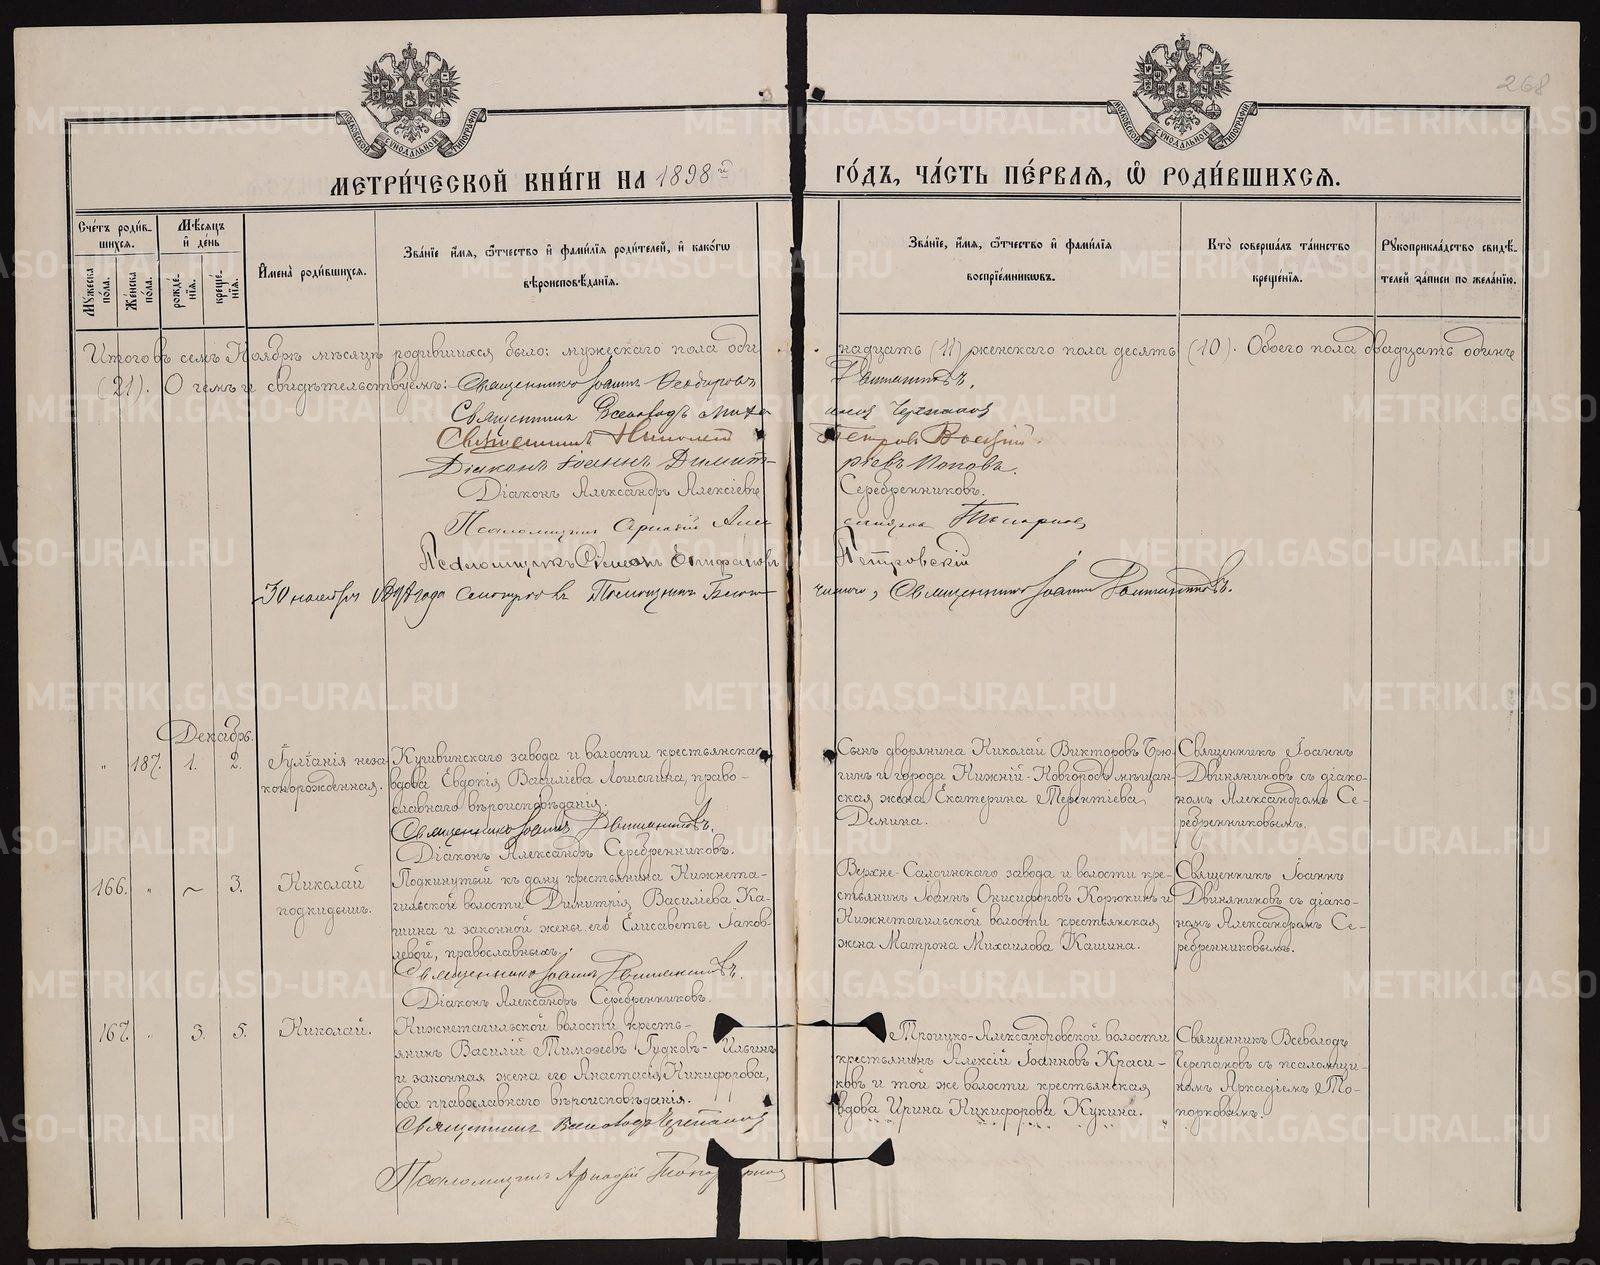 268
МОСКОВСКОЙ СѴНОДАЛЬНОЙ ТИПОГРАФІИ
МОСКОВСКОЙ СѴНОДАЛЬНОЙ ТИПОГРАФІИ
МЕТРИ́ЧЕСКОЙ КНИ́ГИ НА 1898й ГО́ДЪ, ЧА́СТЬ ПЕ́РВАѦ, Ѽ РОДИ́ВШИХСѦ.
Сче́тъ роди́вшихсѧ.
Мѣ́сѧцъ и҆ де́нь
Мꙋ́жеска по́ла.
Же́нска по́ла.
рожде́нїѧ.
креще́нїѧ.
И҆мена̀ роди́вшихсѧ.
Зва́нїе и҆́мѧ, ѻ҆́тчество и҆ фами́лїѧ роди́телей, и҆ како́гѡ вѣроисповѣ́данїѧ.
Зва́нїе, и҆́мѧ, ѻ҆́тчество и҆ фами́лїѧ воспрїе́мникѡвъ.
Кто̀ соверша́лъ та́инство креще́нїѧ.
Рꙋкоприкла́дство свидѣ́телей за́писи по жела́нїю.
Итого въ семъ Ноябрѣ мѣсяцѣ родившихся было: мужескаго пола одиннадцать (11) женскаго пола десять (10). Обоего пола двадцать одинъ
(21). О чемъ и свидѣтельствуемъ: Священникъ Іоаннъ Ѳеодоровъ Двиняниковъ.
Священникъ Всеволодъ Черепановъ
Священникъ Петровъ
Діаконъ Іоаннъ Димитріевъ Поповъ.
Діаконъ Александръ Алексіевъ Серебренниковъ.
Псаломщикъ Топорковъ
Псаломщикъ Симеонъ Епифановъ Петровскій
30 ноября 1898 года Священникъ Іоаннъ Двиняниковъ.
Декабрь.
" 187. 1. 2. Іуліанія незаконорожденная.
Кушвинскаго завода и волости крестьянская
вдова Евдокія Василіева Лошагина, право-
славнаго вѣроисповѣданія.
Священникъ Іоаннъ Двиняниковъ.
Діаконъ Александръ Серебренниковъ.
Сынъ дворянина Николай Викторовъ Брю-
гинъ и города Нижній-Новгородъ мѣщан-
ская жена Екатерина Терентіева
Демина.
Священникъ Іоаннъ
Двиняниковъ съ діако-
номъ Александромъ Се-
ребренниковымъ.
166. " ~ 3. Николай подкидышъ.
Подкинутый къ дому крестьянина Нижнета-
гильской волости Димитрія Василіева Ка-
шина и законной жены его Елисаветы Іаков-
левой, православныхъ.
Священникъ Іоаннъ Двиняниковъ.
Діаконъ Александръ Серебренниковъ.
Верхне-Салдинскаго завода и волости кре-
стьянинъ Іоаннъ Онисифоровъ Корюкинъ и
Нижнетагильской волости крестьянская
жена Матрона Михаилова Кашина.
Священникъ Іоаннъ
Двиняниковъ съ діако-
номъ Александромъ Се-
ребренниковымъ.
167. " 3. 5. Николай.
Нижнетагильской волости кресть-
янинъ Василій Тимоѳеевъ Гудковъ-Ильинъ
и законная жена его Анастасія Никифорова,
оба православнаго вѣроисповѣданія.
Священникъ Всеволодъ Черепановъ
Псаломщикъ Аркадій Топорковъ
Троицко-Александровской волости
крестьянинъ Алексій Іоанновъ Краси-
ковъ и той же волости крестьянская
вдова Ирина Никифорова Кукина.
Священникъ Всеволодъ
Черепановъ съ псаломщи-
комъ Аркадіемъ То-
порковымъ.
METRIKI.GASO-URAL.RU